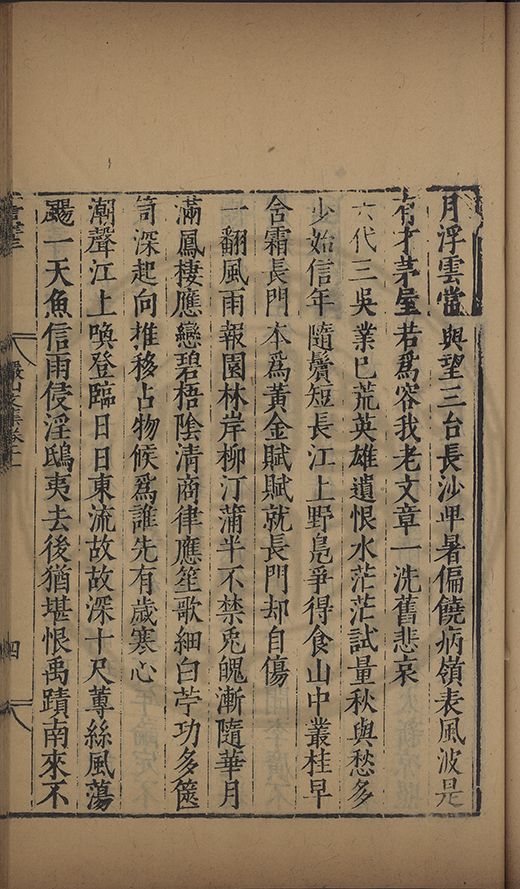 月浮雲當與望三台長沙卑暑偏饒病嶺表風波是
有才茅屋若爲容我老文章一洗舊悲哀
六代三吳業已荒英雄遺恨水茫茫試量秋與愁多
少始信年隨鬢短長江上野鳧爭得食山中叢桂早
含霜長門本爲黃金賦賦就長門却自傷
一翻風雨報園林岸柳汀蒲半不禁兎魄漸隨華月
滿鳳棲應戀碧梧陰清商律應笙歌細白苧功多篋
笥深起向推移占物候爲誰先有歲寒心
潮聲江上喚登臨日日東流故故深十尺蓴絲風蕩
颺一天魚信雨侵淫鴟夷去後猶堪恨禹蹟南來不
四